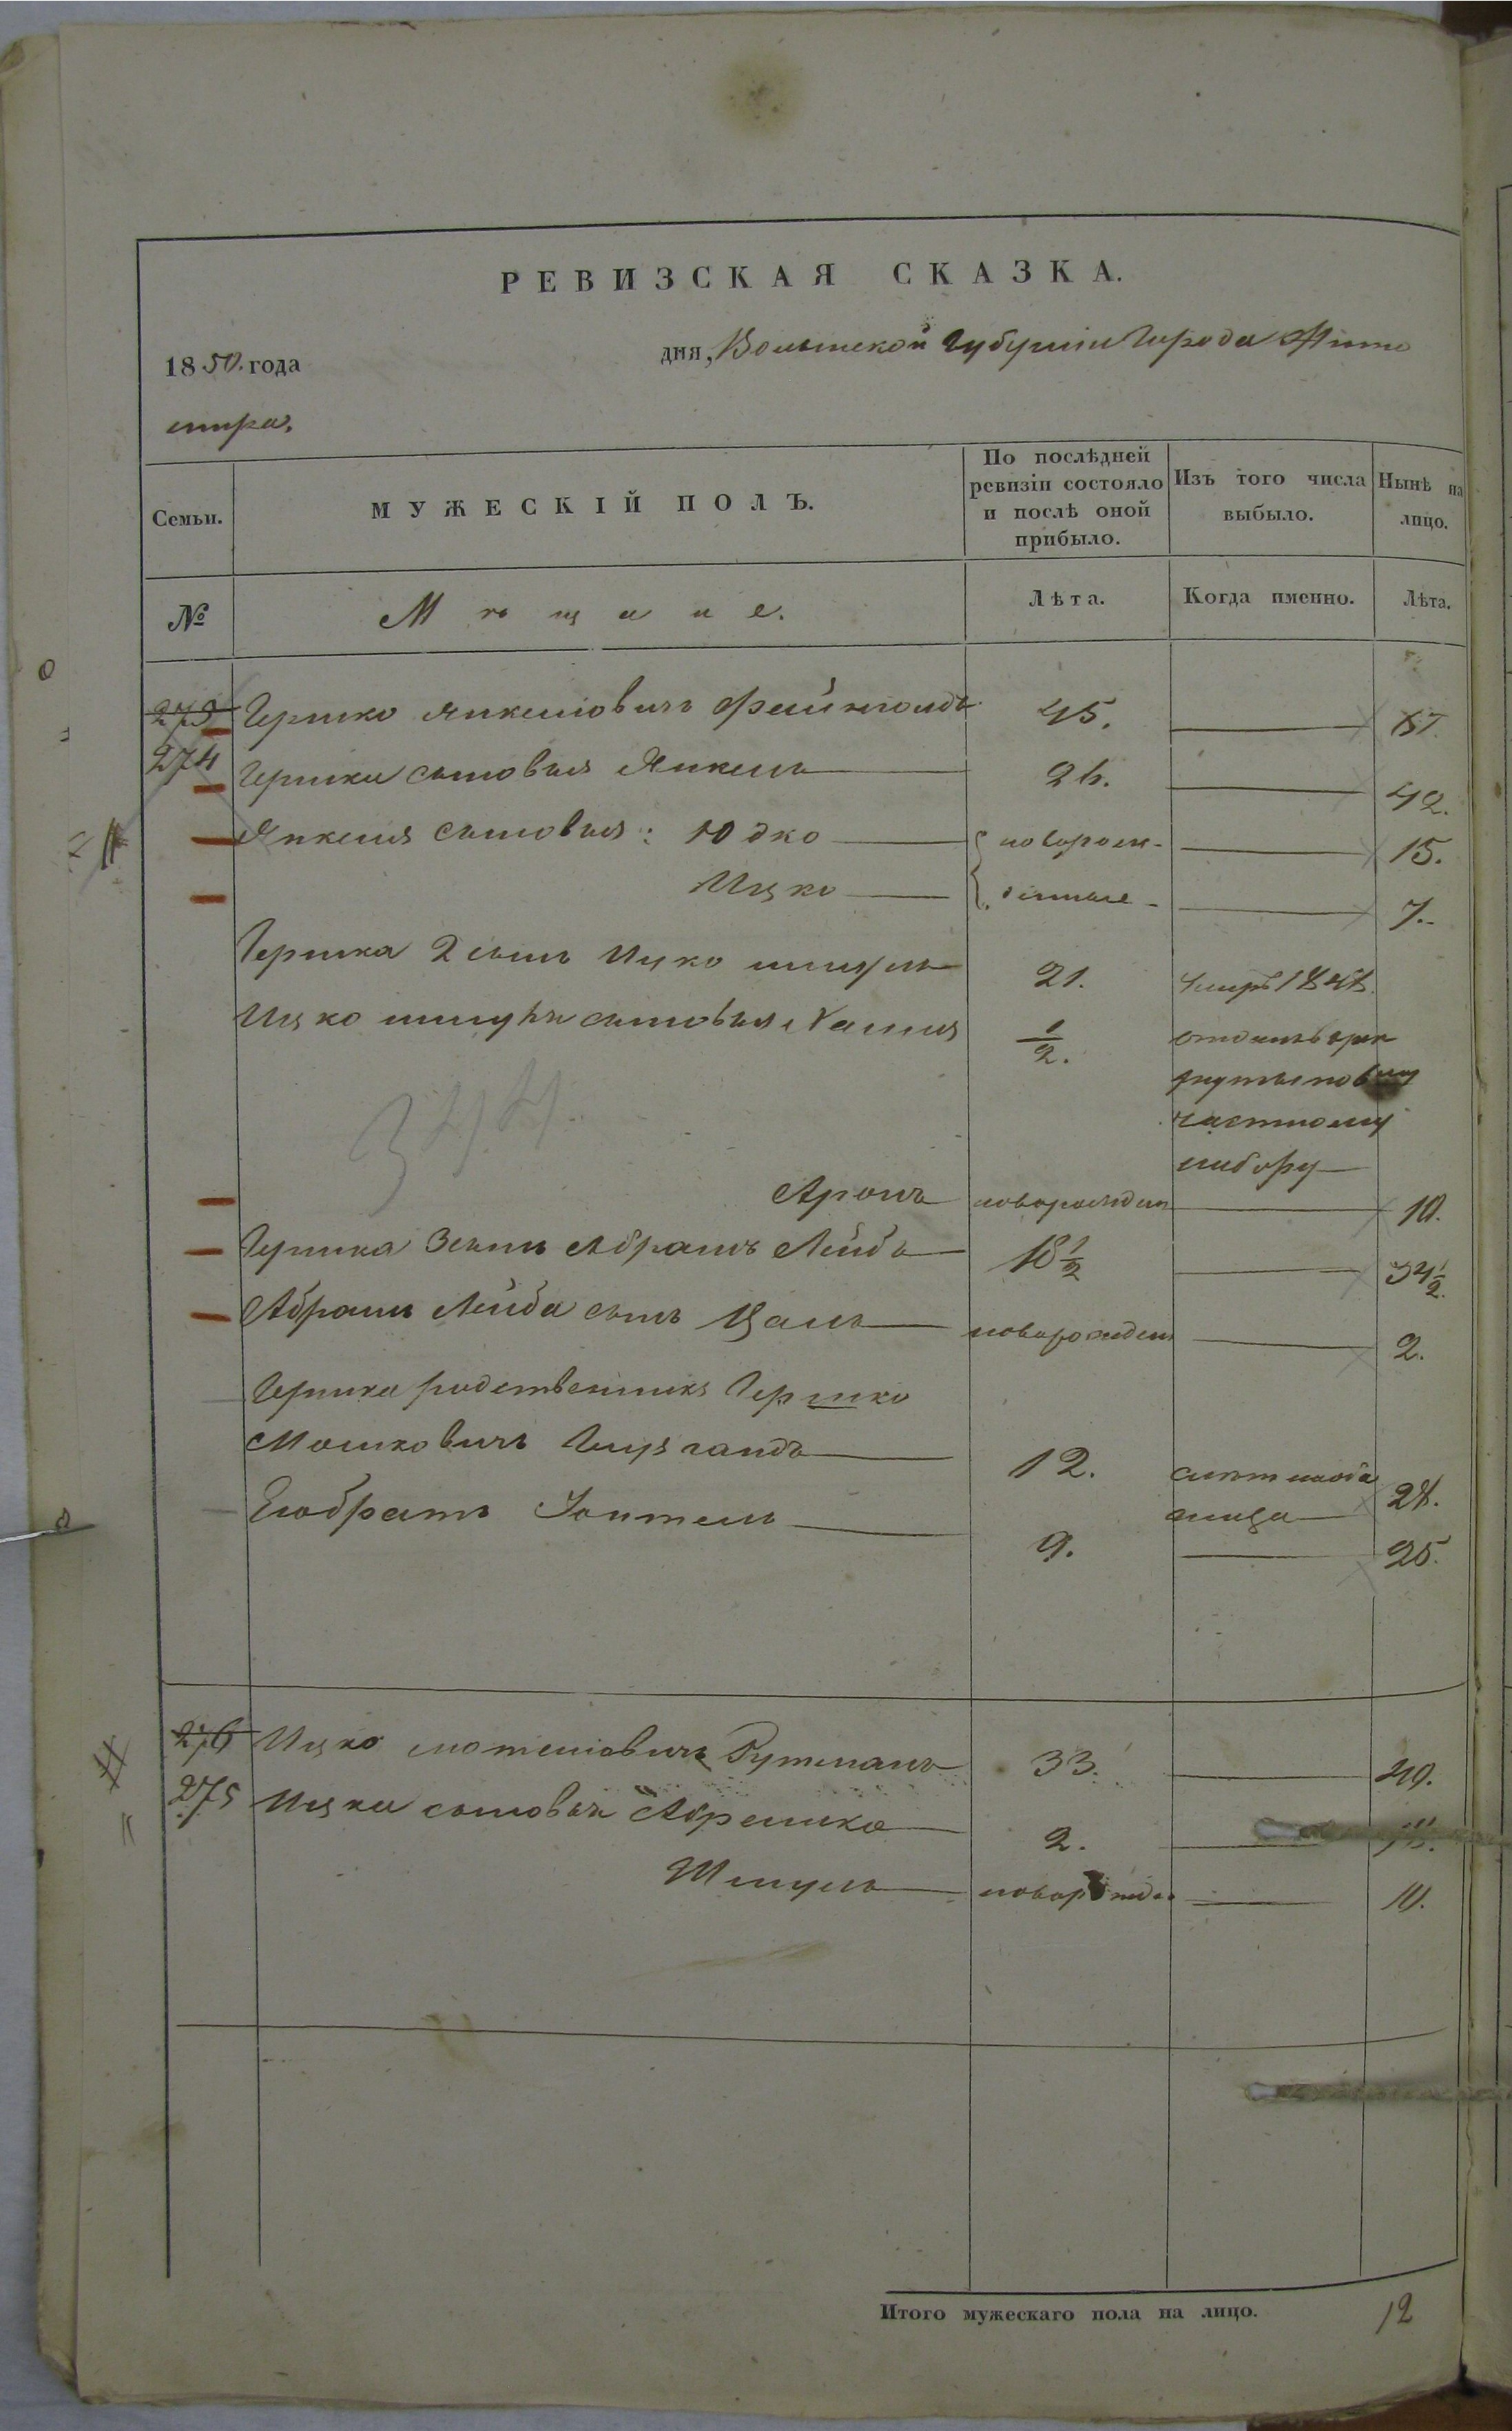 РЕВИЗСКАЯ СКАЗКА.
1850. года дня, Волынской Губерніи Города Жито
мира.
Семьи. МУЖЕСКІЙ ПОЛЪ. По послѣдней ревизіи состояло и послѣ оной прибыло. Изъ того числа выбыло. Нынѣ на лицо.
№ Мѣщане. Лѣта. Когда именно. Лѣта.
275 Гершко Янкелiовичъ Фейнгольдъ 45.
274 Гершки сыновья Янкель 26. 42.
Янкеля сыновья: Юдко новорож- 15.
Ицко денные - 7.
Гершка 2 сынъ Ицко шмуль 21. умеръ 1848.
Ицко шмуля сыновья 1/2. отданъ въ рек
рутыпо
частному
набору
344.
Аронъ новорожден 10.
Гершка 3 сынъ Абрамъ Лейбъ 18 1/2 34 1/2.
Абрамъ Лейба сынъ новорожден 2.
Гершка родственникъ Гершко
Мошковичъ 12. 28.
Его братъ 9. 25.
276 Ицко Мотелiовичъ Рутманъ 33. 49.
275 Ицки сыновья Абрамко 2. 18.
Шмуль новорожден 10.
Итого мужескаго пола на лицо. 12